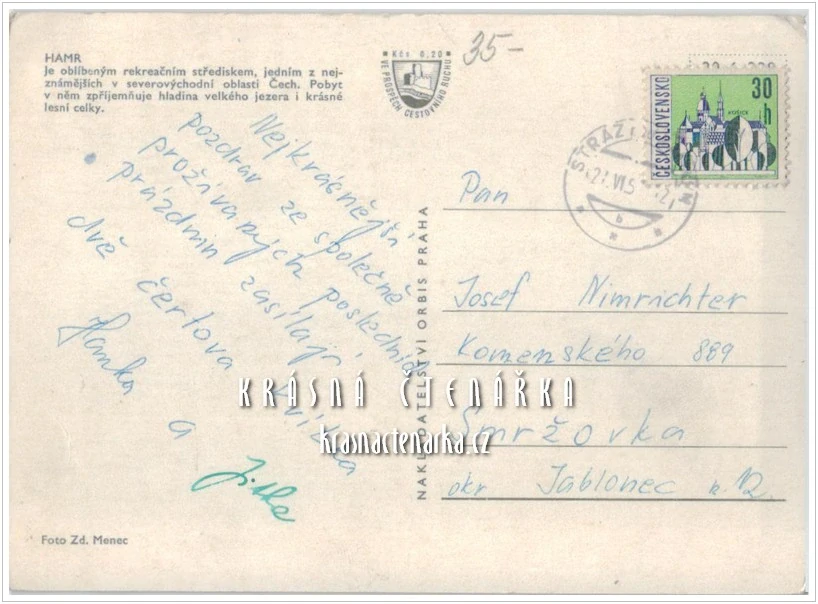 HAMR
Je oblíbeným rekreačním střediskem, jedním z nej-
známějších v severovýchodní oblasti Čech. Pobyt
v něm zpříjemňuje hladina velkého jezera i krásné
lesní celky.
Kčs 0,20
VE PROSPĚCH CESTOVNÍHO RUCHU
35-
ČESKOSLOVENSKO
30 h
STRÁŽ
Nejkrásnější
pozdrav ze společně
prožívaných posledních
prázdnin zasílají
dvě čertova kvítka
Hanka a
Jitka
NAKLADATELSTVÍ ORBIS PRAHA
Pan
Josef Nimrichter
Komenského 889
Smržovka
okr Jablonec n. N.
KRÁSNÁ ČTENÁŘKA
krasnactenarka.cz
Foto Zd. Menec